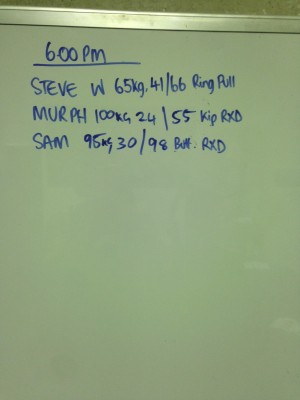 6:00PM
STEVE W 65kg. 41/66 Ring Pull
MURPH 100KG 24/55 Kip RXD
SAM 95kg 30/98 Butt. RXD